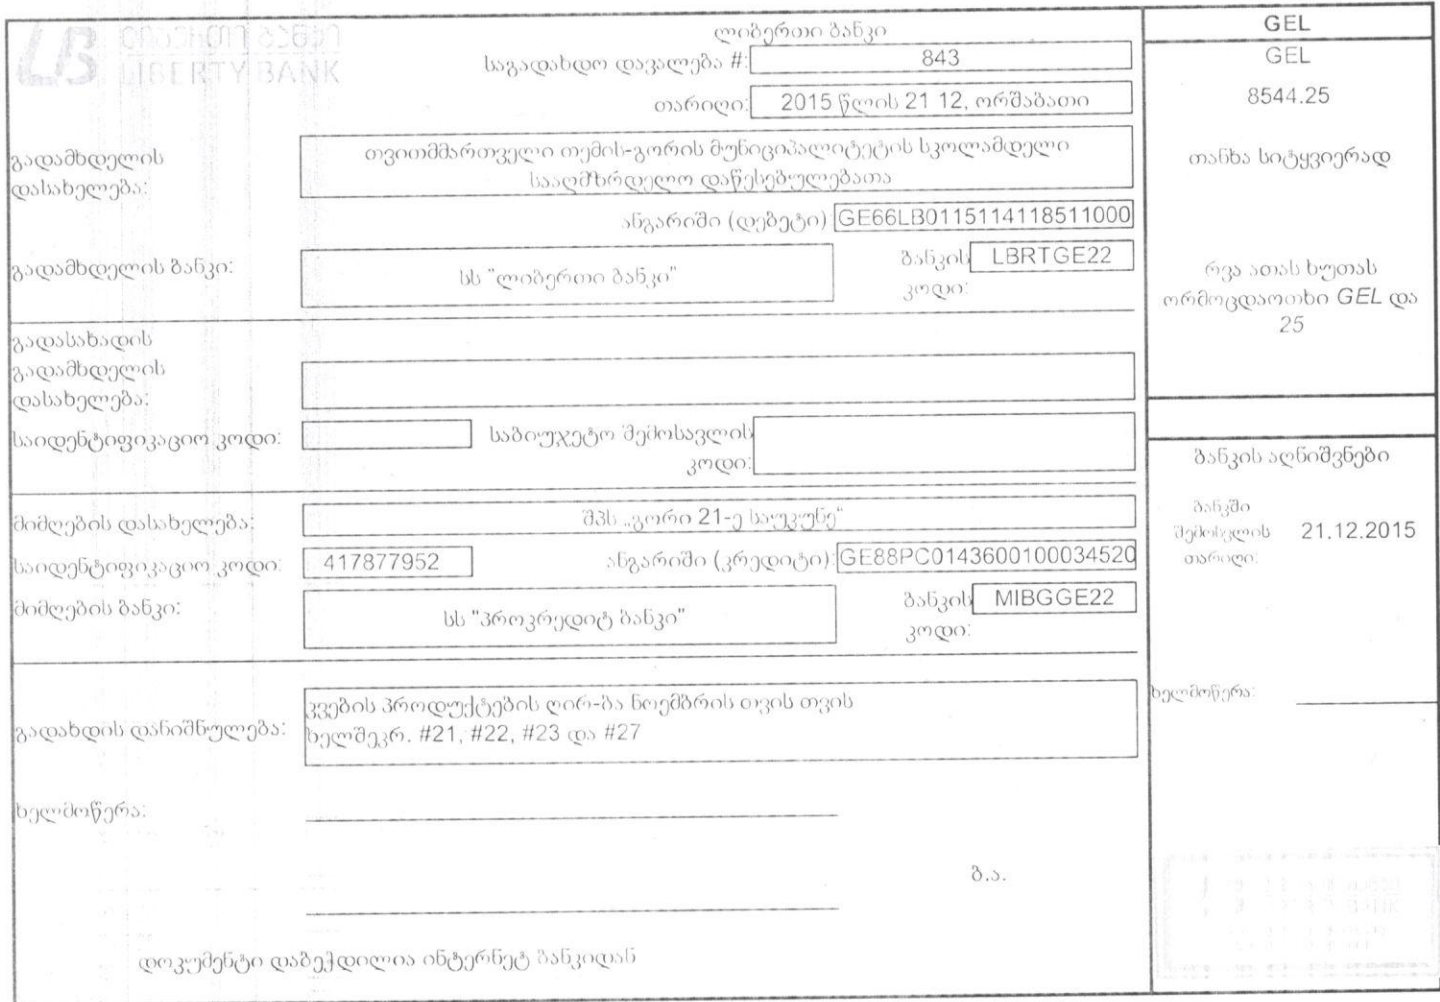 ლიბერთი ბანკი
LB LIBERTY BANK
ლიბერთი ბანკი
საგადახდო დავალება #: 843
თარიღი: 2015 წლის 21 12, ორშაბათი
გადამხდელის
დასახელება:
თვითმმართველი თემის-გორის მუნიციპალიტეტის სკოლამდელი
სააღმზრდელო დაწესებულებათა
ანგარიში (დებეტი) GE66LB0115114118511000
გადამხდელის ბანკი:
სს "ლიბერთი ბანკი"
ბანკის LBRTGE22
კოდი:
გადასახადის
გადამხდელის
დასახელება:
საიდენტიფიკაციო კოდი:
საბიუჯეტო შემოსავლის
კოდი:
მიმღების დასახელება: შპს „გორი 21-ე საუკუნე"
საიდენტიფიკაციო კოდი: 417877952 ანგარიში (კრედიტი): GE88PC0143600100034520
მიმღების ბანკი:
სს "პროკრედიტ ბანკი"
ბანკის MIBGGE22
კოდი:
გადახდის დანიშნულება:
კვების პროდუქტების ღირ-ბა ნოემბრის თვის თვის
ხელშეკრ. #21, #22, #23 და #27
ხელმოწერა:
ბ.ა.
დოკუმენტი დაბეჭდილია ინტერნეტ ბანკიდან
GEL
GEL
8544.25
თანხა სიტყვიერად
რვა ათას ხუთას
ორმოცდაოთხი GEL და
25
ბანკის აღნიშვნები
ბანკში
შემოსვლის 21.12.2015
თარიღი:
ხელმოწერა: